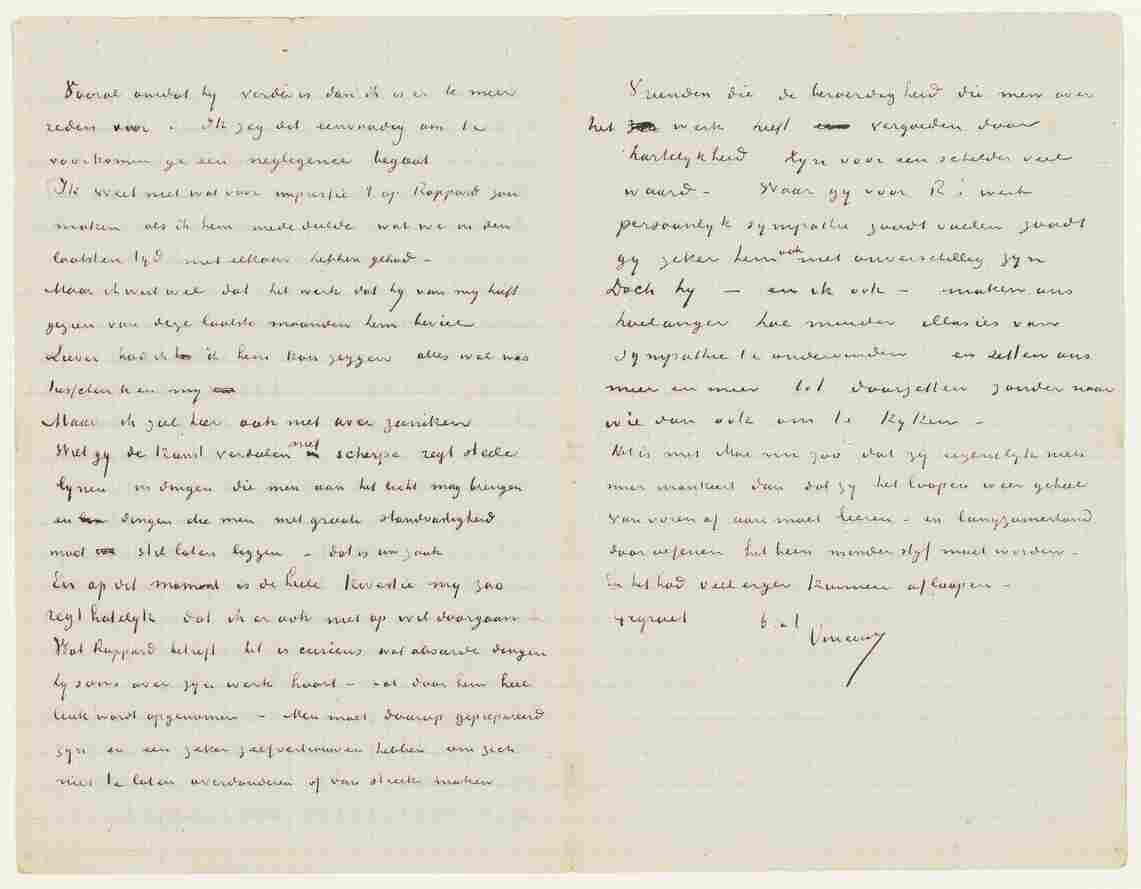 Vooral omdat hy verder is dan ik is er te meer
reden voor. Ik zeg dit eenvoudig om te
voorkomen ge een neglegence begaat
Ik weet niet wat voor impressie 't op Rappard zou
maken als ik hem mededeelde wat we in den
laatsten tyd met elkaar hebben gehad –
Maar ik weet wel dat het werk dat hy van my heeft
gezien van deze laatste maanden hem beviel
Liever had ik ik hem kon zeggen alles wel was
tusschen U en my
Maar ik zal hier ook niet over zaniken
Met gy de kunst verstaan niet scherpe regt
lynen in dingen die men aan het licht mag brengen
en dingen die men met groote standvastigheid
moet stil laten liggen – dat is uw zaak
En op dit moment is de heele kwestie my zoo
regt hatelyk dat ik er ook niet op wil doorgaan –
Wat Rappard betreft het is curieus wat absurde dingen
hy soms over zyn werk hoort – dat door hem heel
leuk wordt opgenomen – Men moet daarop geprepareerd
zyn en een zeker zelfvertrouwen hebben om zich
niet te laten overdonderen of van streek maken
Vrienden die de beroerdigheid die men over
het werk heeft vergoeden door
hartelykheid zyn voor een schilder veel
waard – Waar gy voor R's werk
persoonlyk sympathie zoudt voelen zoudt
gy zeker hem ook niet onverschillig zyn
Doch hy – en ik ook – maken ons
hoe langer hoe minder illusies van
sympathie te ondervinden en zetten ons
meer en meer tot doorzetten zonder naar
wie dan ook om te kyken –
Het is met Moe nu zoo dat zy eigenlyk niets
meer mankeert dan dat zy het loopen weer geheel
van voren af aan moet leeren – en langzamerhand
door oefenen het been minder styf moet worden –
En het had veel erger kunnen afloopen –
gegroet b. a. t.
Vincent